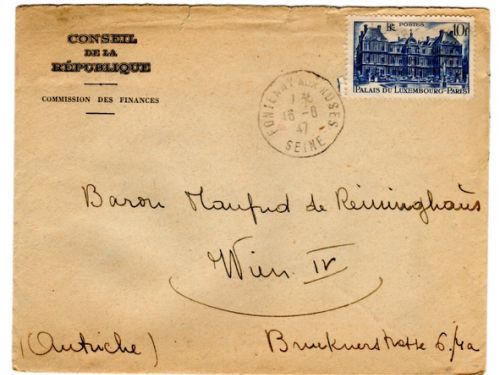 CONSEIL
DE LA
RÉPUBLIQUE
COMMISSION DES FINANCES
RF POSTES 10F
PALAIS DU LUXEMBOURG-PARIS
FONTENAY AUX ROSES
16-8
47
SEINE
Baron Manfred de Reininghaus
Wien IV
(Autriche)
Brucknerstrasse 6/4a